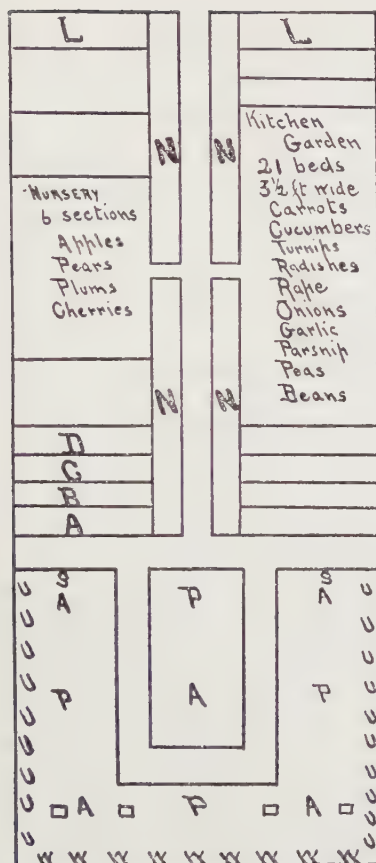 L
L
N
N
Kitchen
Garden
21 beds
3½ ft wide
Carrots
Cucumbers
Turnips
Radishes
Rape
Onions
Garlic
Parsnip
Peas
Beans
NURSERY
6 sections
Apples
Pears
Plums
Cherries
N
N
D
C
B
A
S
A
P
S
A
P
A
P
A
P
A
U U U U U U U U U
U U U U U U U U U
W W W W W W W W